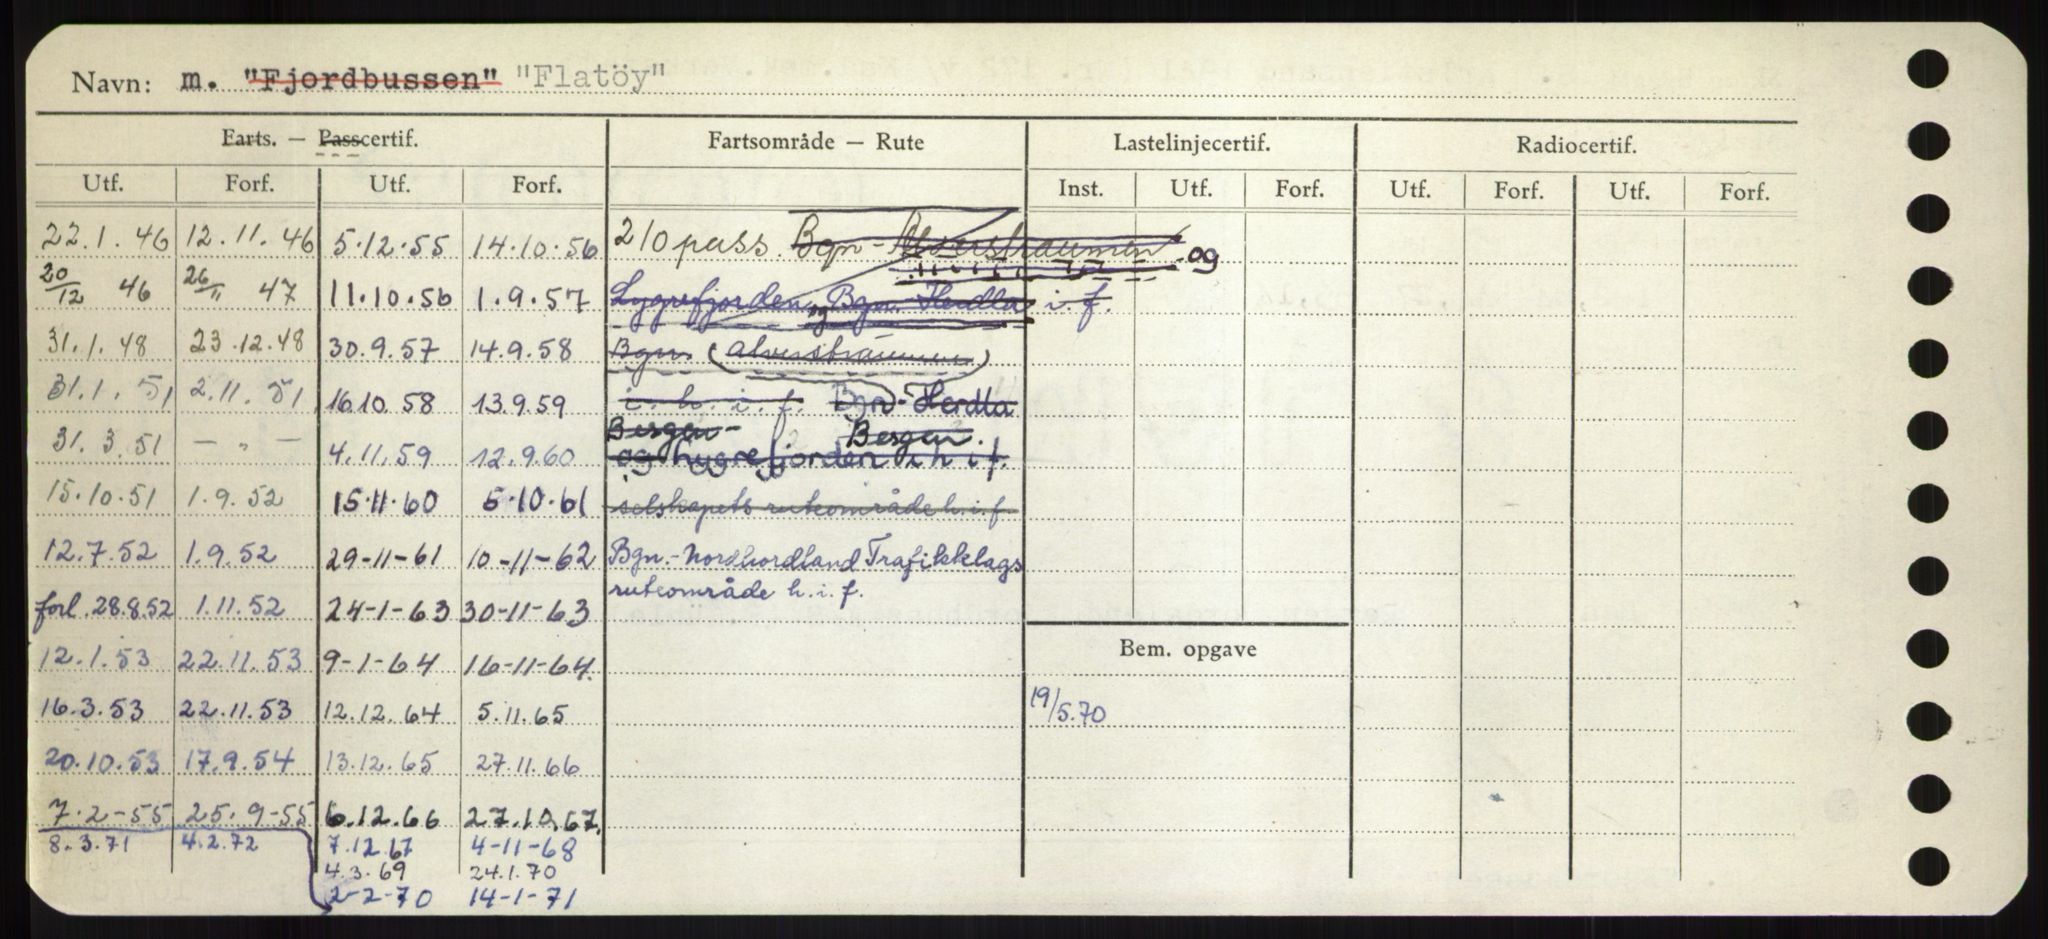 Navn: m. "Fjordbussen" "Flatöy"
Farts. — Passcertif. Fartsområde — Rute Lastelinjecertif. Radiocertif.
Utf. Forf. Utf. Forf. Inst. Utf. Forf. Utf. Forf. Utf. Forf.
22.1.46 12.11.46 5.12.55 14.10.56 210 pass. Bgn - Alverstraumen og
20/12 46 26/11 47 11.10.56 1.9.57 Lygrefjorden og Bgn. Herdla i. f.
31.1.48 23.12.48 30.9.57 14.9.58 Bgn. (Alverstraumen)
31.1.51 2.11.51 16.10.58 13.9.59 i. h. i. f. Bgn-Herdla
Bergen - Bergen.
31.3.51 — " — 4.11.59 12.9.60 og Lygrefjorden i h i f.
15.10.51 1.9.52 15.11.60 5.10.61 selskapets ruteområde h.i.f.
12.7.52 1.9.52 29-11-61 10-11-62 Bgn.- Nordhordland Trafikklags
ruteområde h.i.f.
forl. 28.8.52 1.11.52 24-1-63 30-11-63
12.1.53 22.11.53 9-1-64 16-11-64. Bem. opgave
16.3.53 22.11.53 12.12.64 5.11.65 19/5.70
20.10.53 17.9.54 13.12.65 27.11.66
7.2-55 25.9-55 6.12.66 27.10.67.
8.3.71 4.2.72 7.12.67 4-11-68
4.3.69 24.1.70
2-2-70 14-1-71